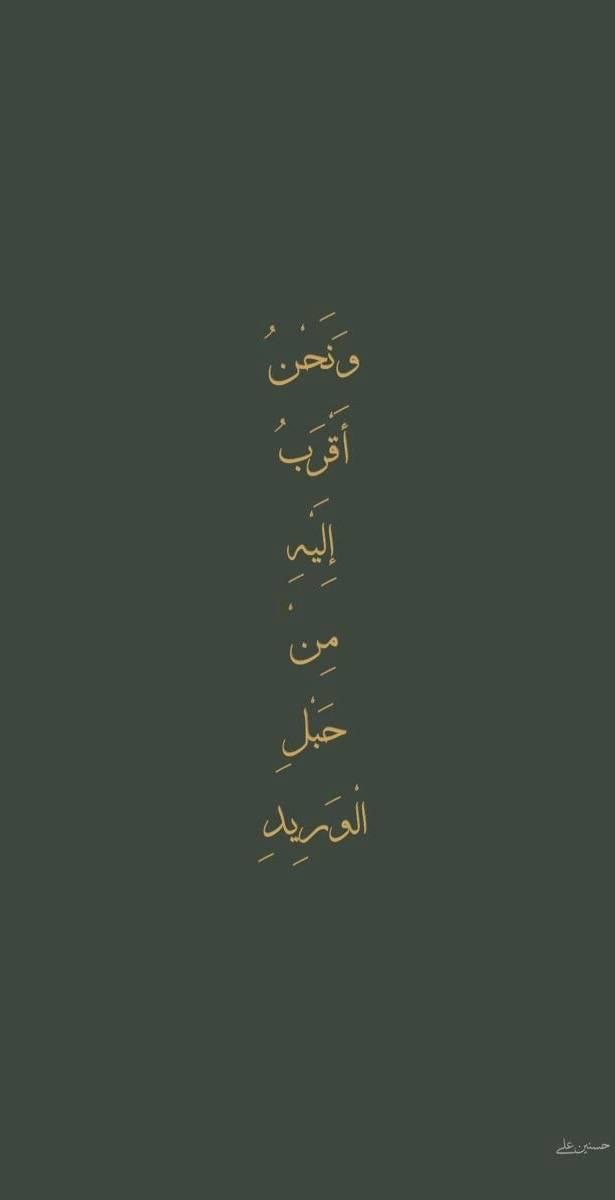 وَنَحْنُ
أَقْرَبُ
إِلَيْهِ
مِنْ
حَبْلِ
الْوَرِيدِ
حسنين علي